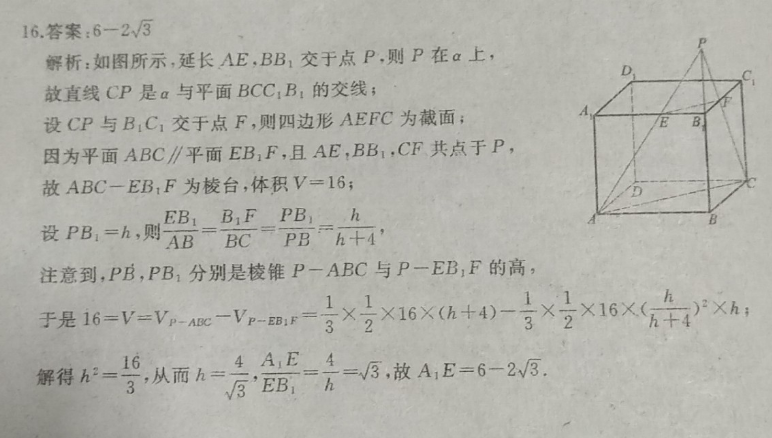 16.答案:6−2√3
解析:如图所示,延长 AE,BB₁ 交于点 P,则 P 在 α 上,
故直线 CP 是 α 与平面 BCC₁B₁ 的交线;
设 CP 与 B₁C₁ 交于点 F,则四边形 AEFC 为截面;
因为平面 ABC∥平面 EB₁F,且 AE,BB₁,CF 共点于 P,
故 ABC−EB₁F 为棱台,体积 V=16;
设 PB₁=h,则 EB₁/AB = B₁F/BC = PB₁/PB = h/(h+4),
注意到,PB,PB₁ 分别是棱锥 P−ABC 与 P−EB₁F 的高,
于是 16=V=V_{P−ABC}−V_{P−EB₁F}=1/3×1/2×16×(h+4)−1/3×1/2×16×(h/(h+4))²×h;
解得 h²=16/3,从而 h=4/√3,A₁E/EB₁=4/h=√3,故 A₁E=6−2√3.
P
D₁
C₁
A₁
E
B₁
F
D
C
A
B